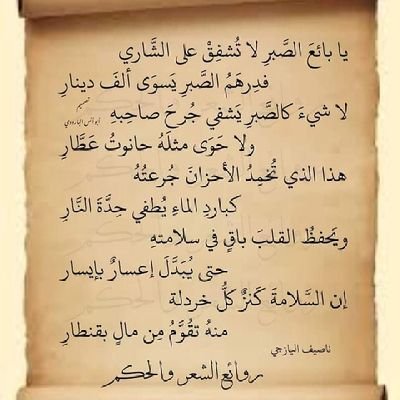 يا بائعَ الصَّبرِ لا تُشفِقْ على الشَّاري
فدِرهَمُ الصَّبرِ يَسوَى ألفَ دينارِ
لا شيءَ كالصَّبرِ يَشفي جُرحَ صاحبِهِ
تصميم
أبو أنس البارودي
ولا حَوَى مثلَهُ حانوتُ عَطَّارِ
هذا الذي تُخمِدُ الأحزانَ جُرعتُهُ
كباردِ الماءِ يُطفي حِدَّةَ النَّارِ
ويَحفظُ القلبَ باقٍ في سلامتهِ
حتى يُبَدَّلَ إعسارٌ بإيسار
إن السَّلامةَ كَنزٌ كلُّ خردلة
منهُ تقوَّمُ مِن مالٍ بقنطارِ
ناصيف اليازجي
روائع الشعر والحكم